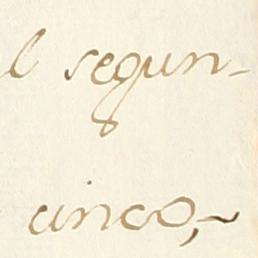 l segun-
cinco,~